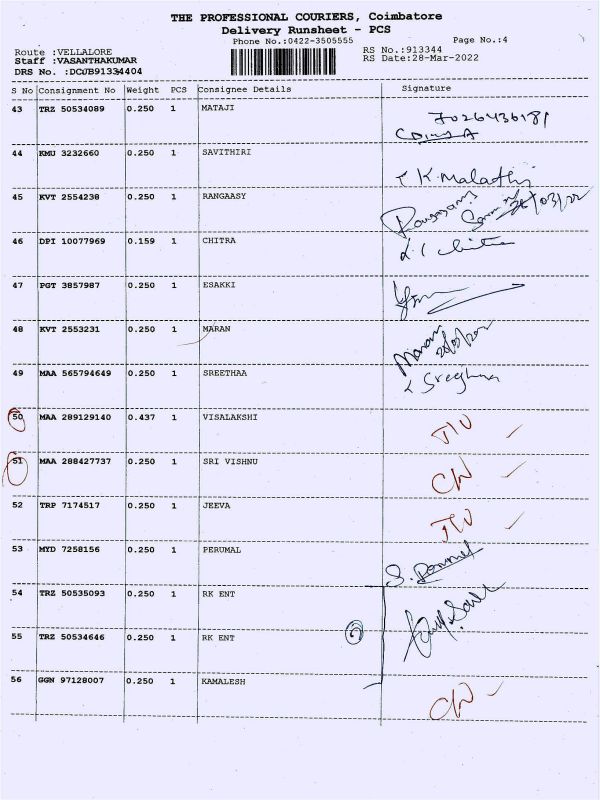 THE PROFESSIONAL COURIERS, Coimbatore
Delivery Runsheet - PCS
Phone No.:0422-3505555 Page No.:4
Route :VELLALORE RS No.:913344
Staff :VASANTHAKUMAR RS Date:28-Mar-2022
DRS No. :DCJB91334404
S No Consignment No Weight PCS Consignee Details Signature
43 TRZ 50534089 0.250 1 MATAJI
7026436181
44 KMU 3232660 0.250 1 SAVITHIRI
K. Malathi
45 KVT 2554238 0.250 1 RANGAASY
46 DPI 10077969 0.159 1 CHITRA
47 PGT 3857987 0.250 1 ESAKKI
48 KVT 2553231 0.250 1 MARAN
Maran
49 MAA 565794649 0.250 1 SREETHAA
50 MAA 289129140 0.437 1 VISALAKSHI
51 MAA 288427737 0.250 1 SRI VISHNU
52 TRP 7174517 0.250 1 JEEVA
53 MYD 7258156 0.250 1 PERUMAL
54 TRZ 50535093 0.250 1 RK ENT
2
55 TRZ 50534646 0.250 1 RK ENT
56 GGN 97128007 0.250 1 KAMALESH